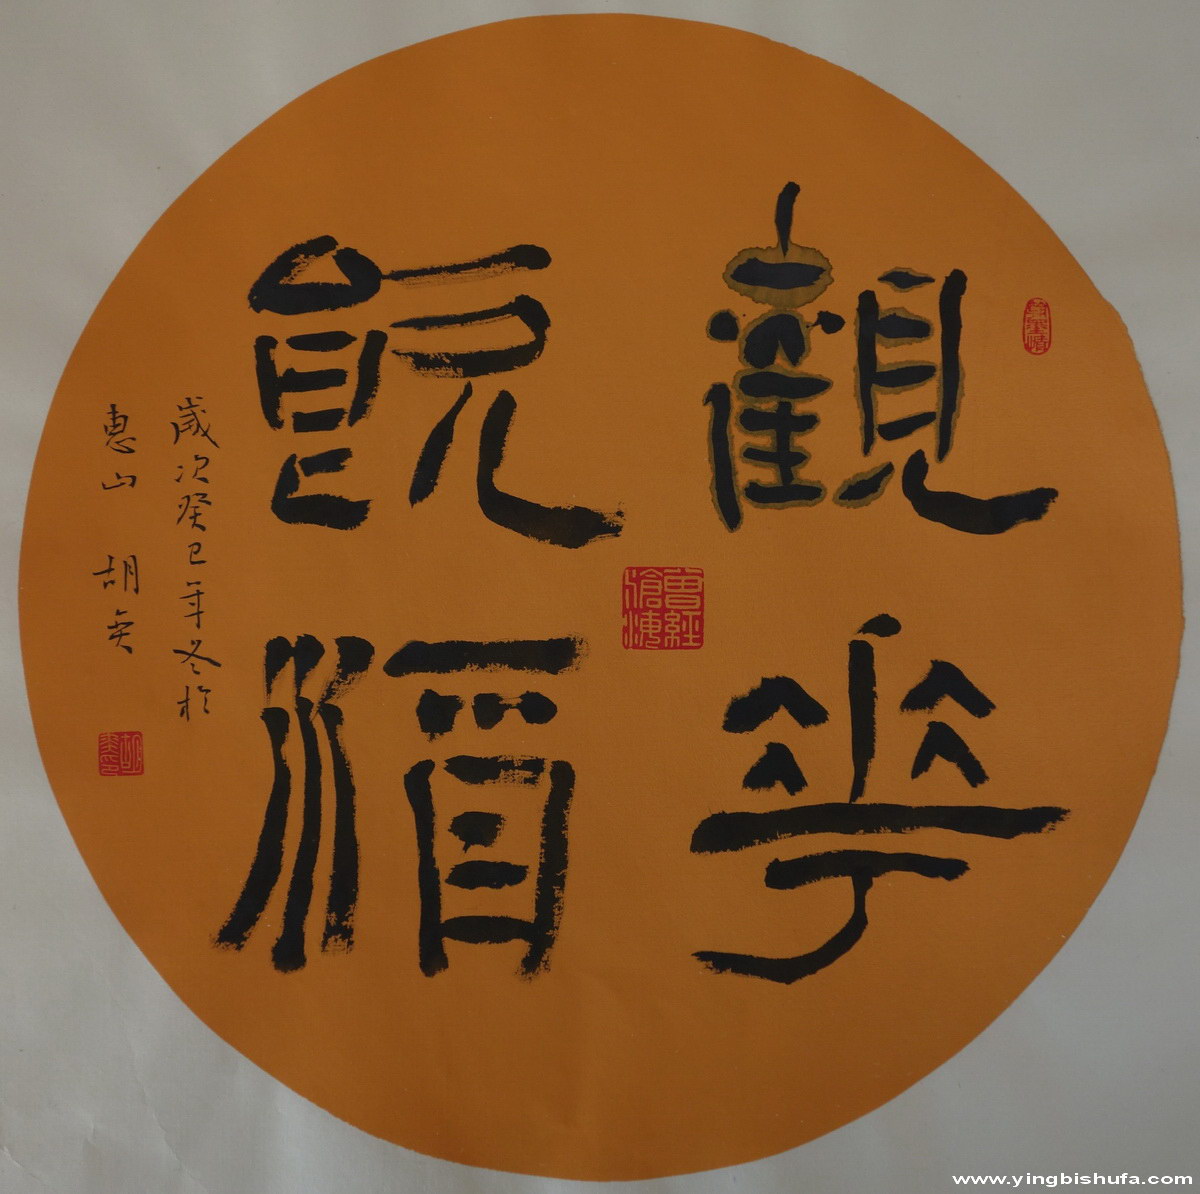 觀華
飲酒
歲次癸巳年冬於
惠山 胡
曾經滄海
www.yingbishufa.com